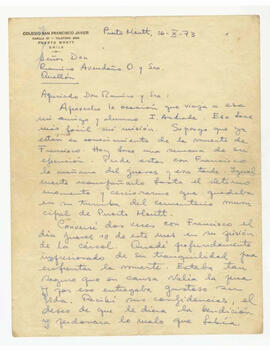 COLEGIO SAN FRANCISCO JAVIER
PUERTO MONTT
CHILE
Puerto Montt, 26-X-73
Señor Don
Ramiro Avendaño O. y Sra.
Quellón
Apreciado Don Ramiro y Sra:
Aprovecho la ocasión que viaja a esa
mi amigo y alumno I. Andrade. Eso hace
más fácil mi misión. Supongo que ya
están en conocimiento de la muerte de
Francisco. Hoy hace una semana de su
ejecución. Pude estar con Francisco
la mañana del jueves y esa tarde. Igual
mente acompañarlo hasta el último
momento y cerciorarme que quedaba
en su tumba del cementerio muni
cipal de Puerto Montt.
Conversé dos veces con Francisco el
día jueves 18 de este mes en su prisión
de la cárcel. Quedé profundamente
impresionado de su tranquilidad para
enfrentar la muerte. Estaba tan
seguro que su causa valía la pena
y por eso entregaba gustoso su
vida. Recibí sus confidencias, el
deseo de que le diera la bendición
y perdonara lo malo que había